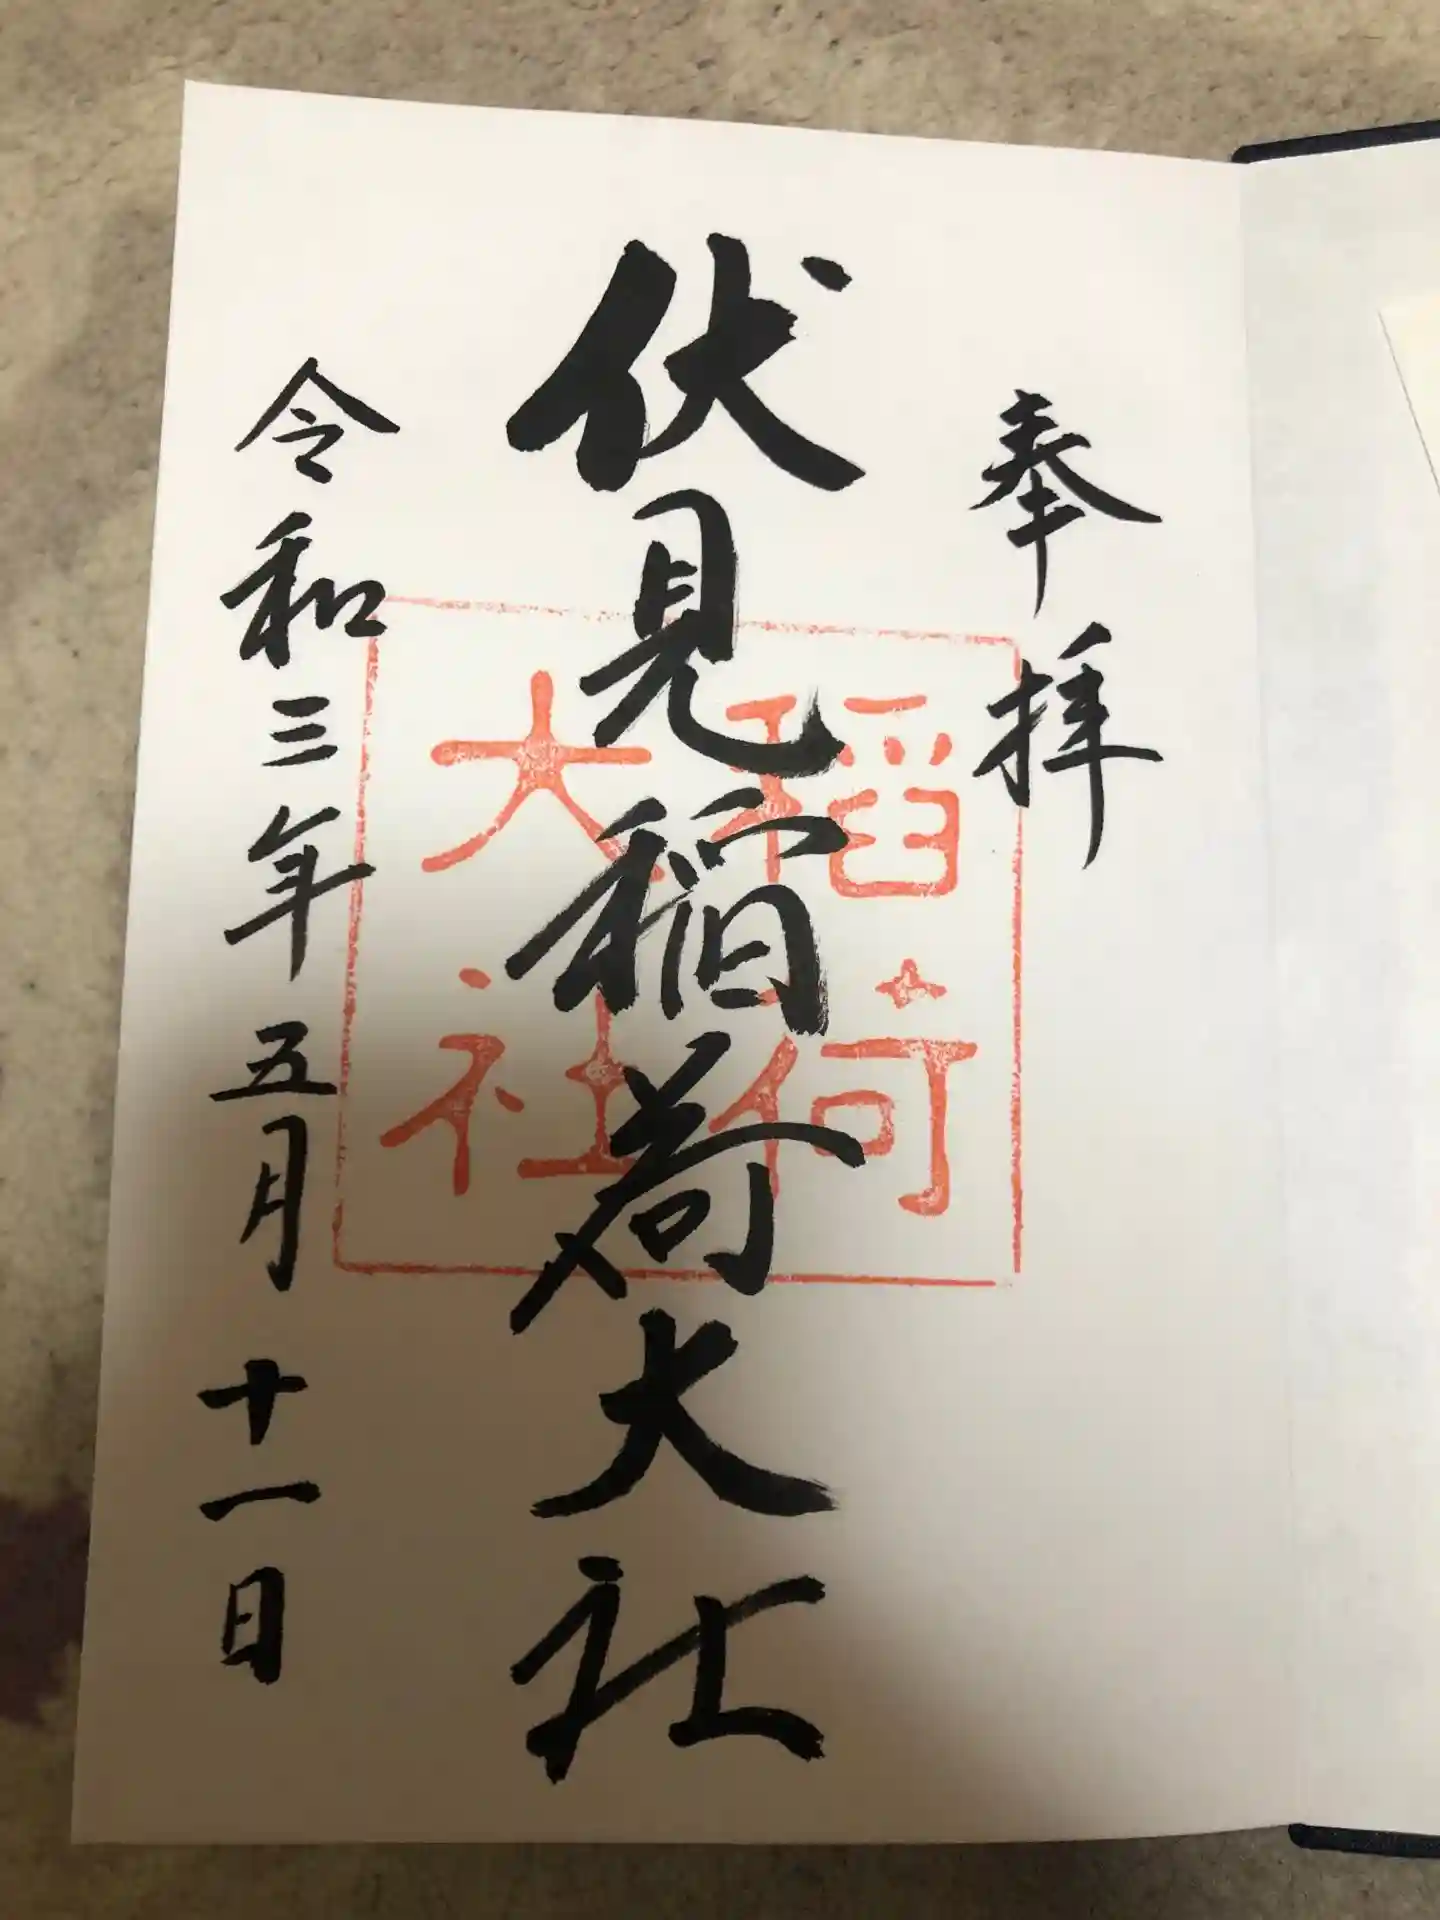 奉拝
伏見稲荷大社
稲荷
大社
令和三年五月十一日